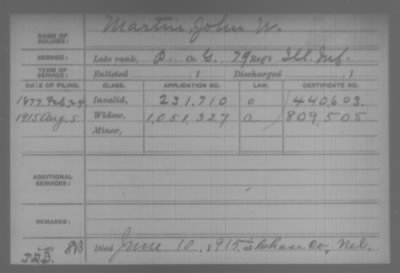 NAME OF SOLDIER: Martin, John W.
SERVICE: Late rank, P. Co. G, 79 Regt Ill. Inf.
TERM OF SERVICE: Enlisted , 1 Discharged , 1
DATE OF FILING. CLASS. APPLICATION NO. LAW. CERTIFICATE NO.
1877 Feb 24 Invalid, 231,710 440,643
1915 Aug. 5 Widow, 1,051,327 809,505
Minor,
ADDITIONAL SERVICES:
REMARKS:
Died June 10, 1915, at Chase Co, Neb.